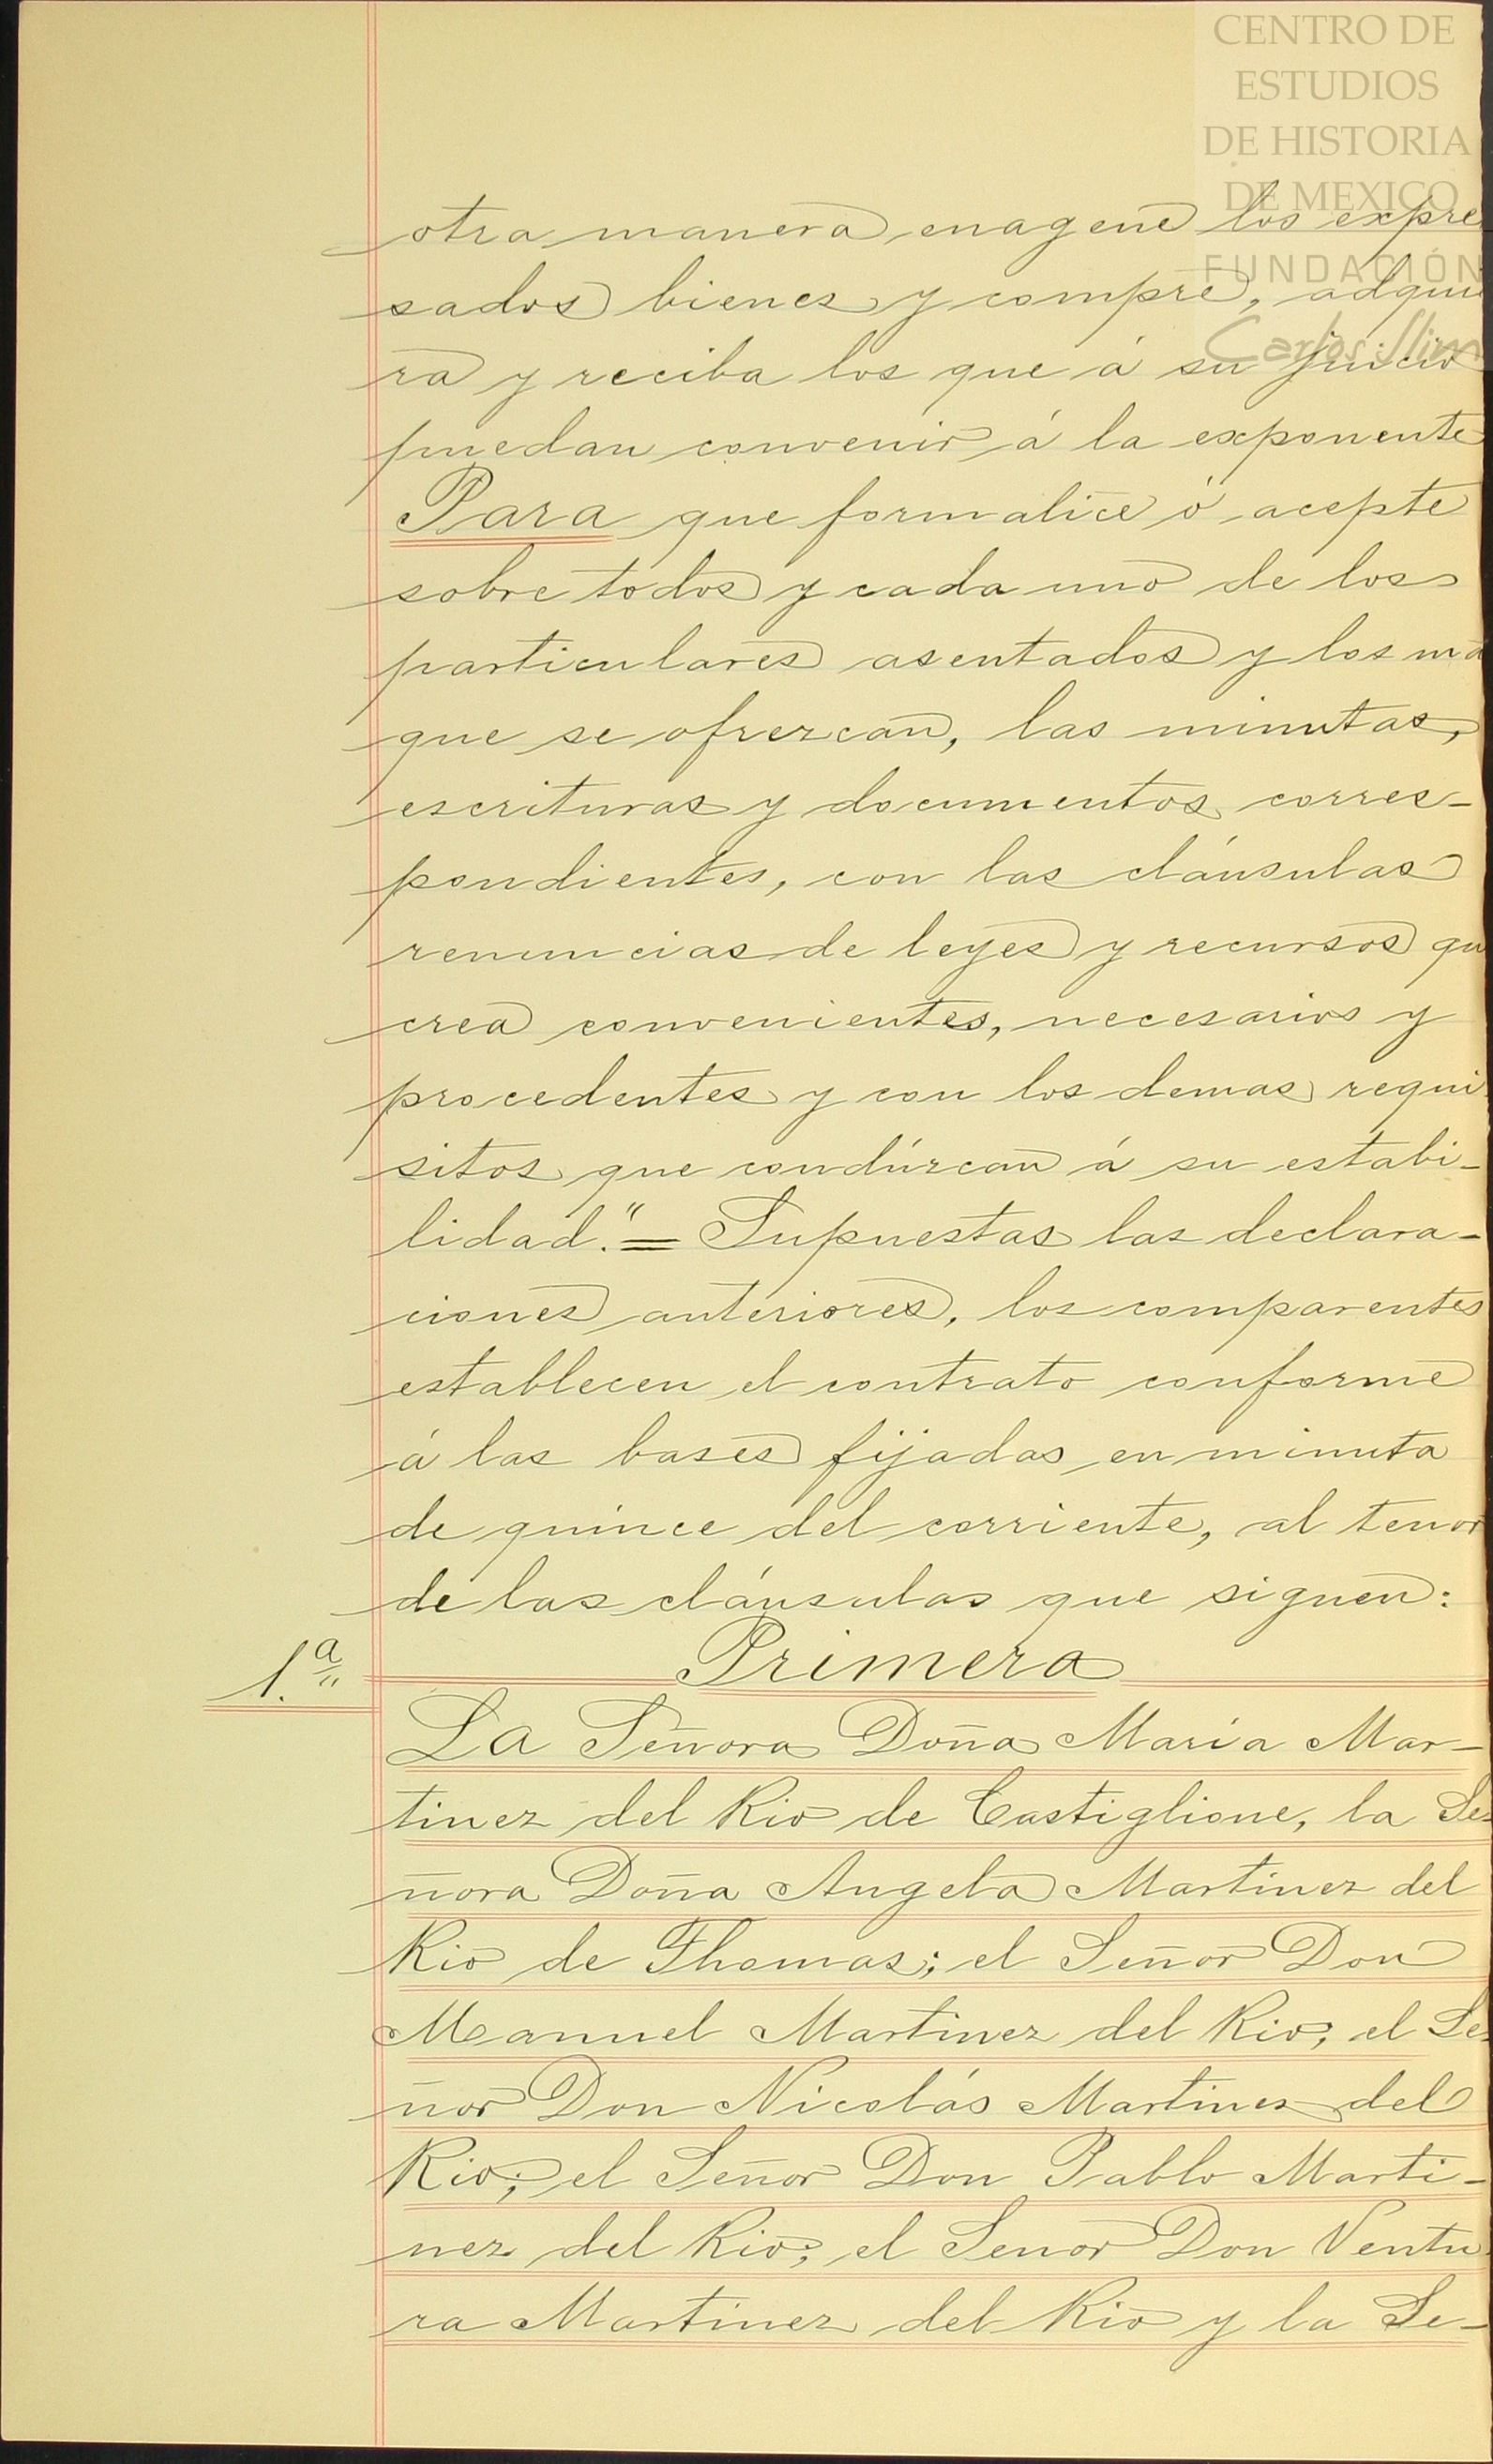 CENTRO DE
ESTUDIOS
DE HISTORIA
DE MEXICO
FUNDACIÓN
Carlos Slim
otra manera enagene los expre
sados bienes y compre, adqui
ra y reciba los que á su juicio
puedan convenir á la exponente
Para que formalice ó acepte
sobre todos y cada uno de los
particulares asentados y los má
que se ofrezcan, las minutas,
escrituras y documentos corres-
pondientes, con las cláusulas
renuncias de leyes y recursos qu
crea convenientes, necesarios y
procedentes y con los demas requi
sitos que condúzcan á su estabi-
lidad." = Supuestas las declara-
ciones anteriores, los comparentes
establecen el contrato conforme
á las bases fijadas en minuta
de quince del corriente, al tenor
de las cláusulas que siguen:
1.a Primera
La Señora Doña María Mar-
tinez del Rio de Castiglione, la Se-
ñora Doña Angela Martinez del
Rio de Thomas; el Señor Don
Manuel Martinez del Rio; el Se-
ñor Don Nicolás Martinez del
Rio; el Señor Don Pablo Marti-
nez del Rio; el Señor Don Ventu
ra Martinez del Rio y la Se-